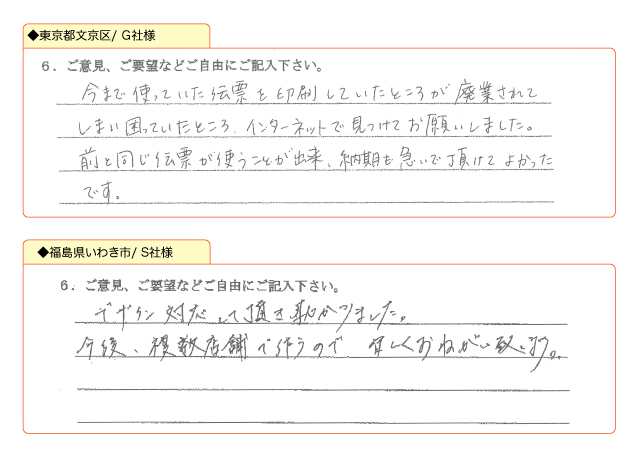 ◆東京都文京区/ G社様
6．ご意見、ご要望などご自由にご記入下さい。
今まで使っていた伝票を印刷していたところが廃業されて
しまい困っていたところ、インターネットで見つけてお願いしました。
前と同じ伝票が使うことが出来、納期も急いで頂けてよかった
です。
◆福島県いわき市/ S社様
6．ご意見、ご要望などご自由にご記入下さい。
デザイン対応して頂き助かりました。
今後、複数店舗で使うので宜しくおねがい致します。